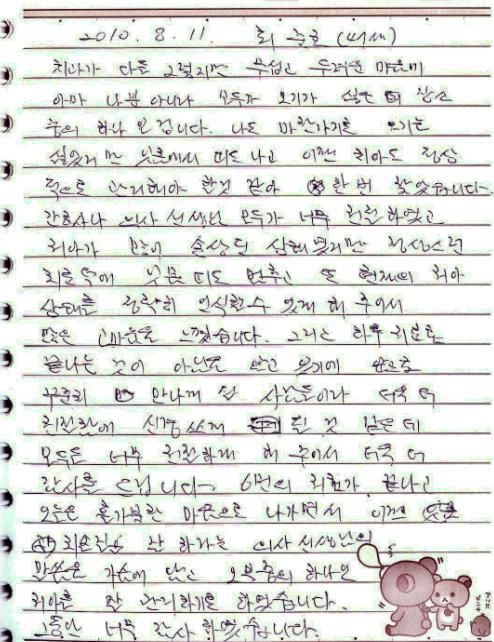 2010. 8. 11. 최
치과가 다들 그렇지만 무섭고 두려운 마음에
아마 나뿐 아니라 모두가 오기가 싫은 데 장소
중의 하나 일 겁니다. 나도 마찬가지로 오기는
싫었지만 잇몸에서 피도 나고 이젠 치아도 정상
적으로 관리해야 할것 같아 한 번 찾았습니다
간호사나 의사 선생님 모두가 너무 친절하였고
치아가 많이 손상된 상태였지만 정상스런
치료 덕에 잇몸 피도 멈추고 또 현재의 치아
상태를 정확히 인식할수 있게 해 주어서
많은 마음을 느꼈습니다. 그리고 하루 치료로
끝나는 것이 아닌 알고 있기에 앞으로
꾸준히 만나게 될 사람들이라 더욱 더
친절함에 신경 쓰게 될 것 같은데
모두들 너무 친절하게 해 주어서 더욱 더
감사를 드립니다. 6번의 치료가 끝나고
오늘은 홀가분한 마음으로 나가면서 이젠
치아관리 잘 하라는 의사 선생님의
말씀을 가슴에 담고 오복중의 하나인
치아를 잘 관리하기로 하였습니다.
그동안 너무 감사 하였습니다.